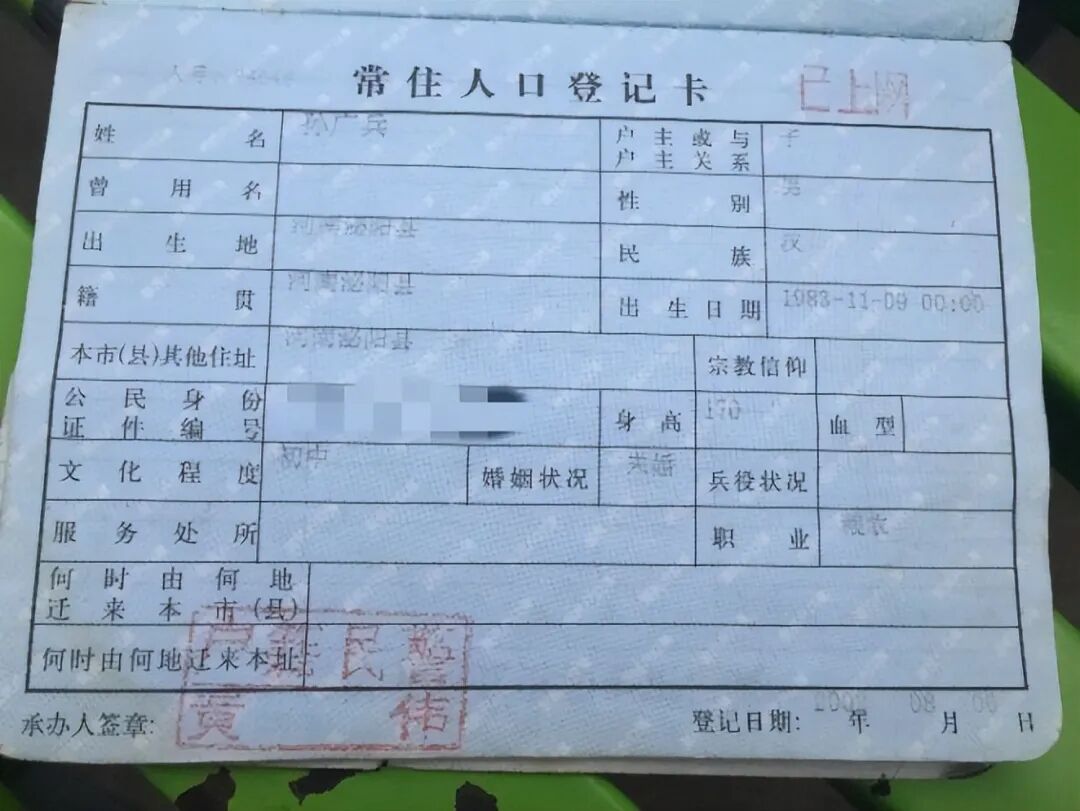 常住人口登记卡
已上网
姓名 孙广兵 户主或与户主关系 子
曾用名 性别 男
出生地 河南泌阳县 民族 汉
籍贯 河南泌阳县 出生日期 1983-11-09 00:00
本市(县)其他住址 河南泌阳县 宗教信仰
公民身份证件编号 身高 170 血型
文化程度 初中 婚姻状况 未婚 兵役状况
服务处所 职业
何时由何地迁来本市(县)
何时由何地迁来本址
户籍民警
黄 佑
承办人签章: 登记日期: 年 08 月 日